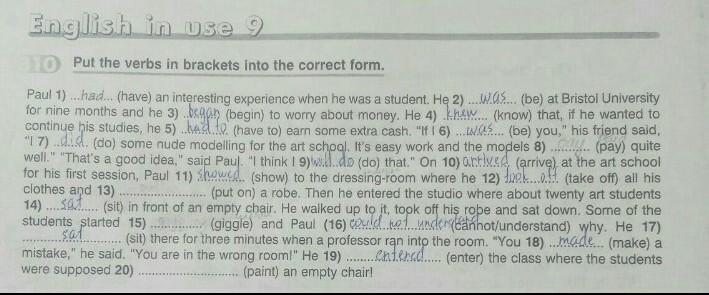 English in use 9
10 Put the verbs in brackets into the correct form.
Paul 1) ...had... (have) an interesting experience when he was a student. He 2) ...was... (be) at Bristol University
for nine months and he 3) ..began (begin) to worry about money. He 4) ..knew.... (know) that, if he wanted to
continue his studies, he 5) ..had to (have to) earn some extra cash. "If I 6) ...was... (be) you," his friend said,
"I 7) ..did. (do) some nude modelling for the art school. It's easy work and the models 8) ............ (pay) quite
well." "That's a good idea," said Paul. "I think I 9) will do (do) that." On 10) arrived (arrive) at the art school
for his first session, Paul 11) showed (show) to the dressing-room where he 12) took...off (take off) all his
clothes and 13) ..................... (put on) a robe. Then he entered the studio where about twenty art students
14) ....sat.... (sit) in front of an empty chair. He walked up to it, took off his robe and sat down. Some of the
students started 15) ............... (giggle) and Paul (16) could not understand (cannot/understand) why. He 17)
............sat............ (sit) there for three minutes when a professor ran into the room. "You 18) ...made... (make) a
mistake," he said. "You are in the wrong room!" He 19) .........entered.... (enter) the class where the students
were supposed 20) .......................... (paint) an empty chair!